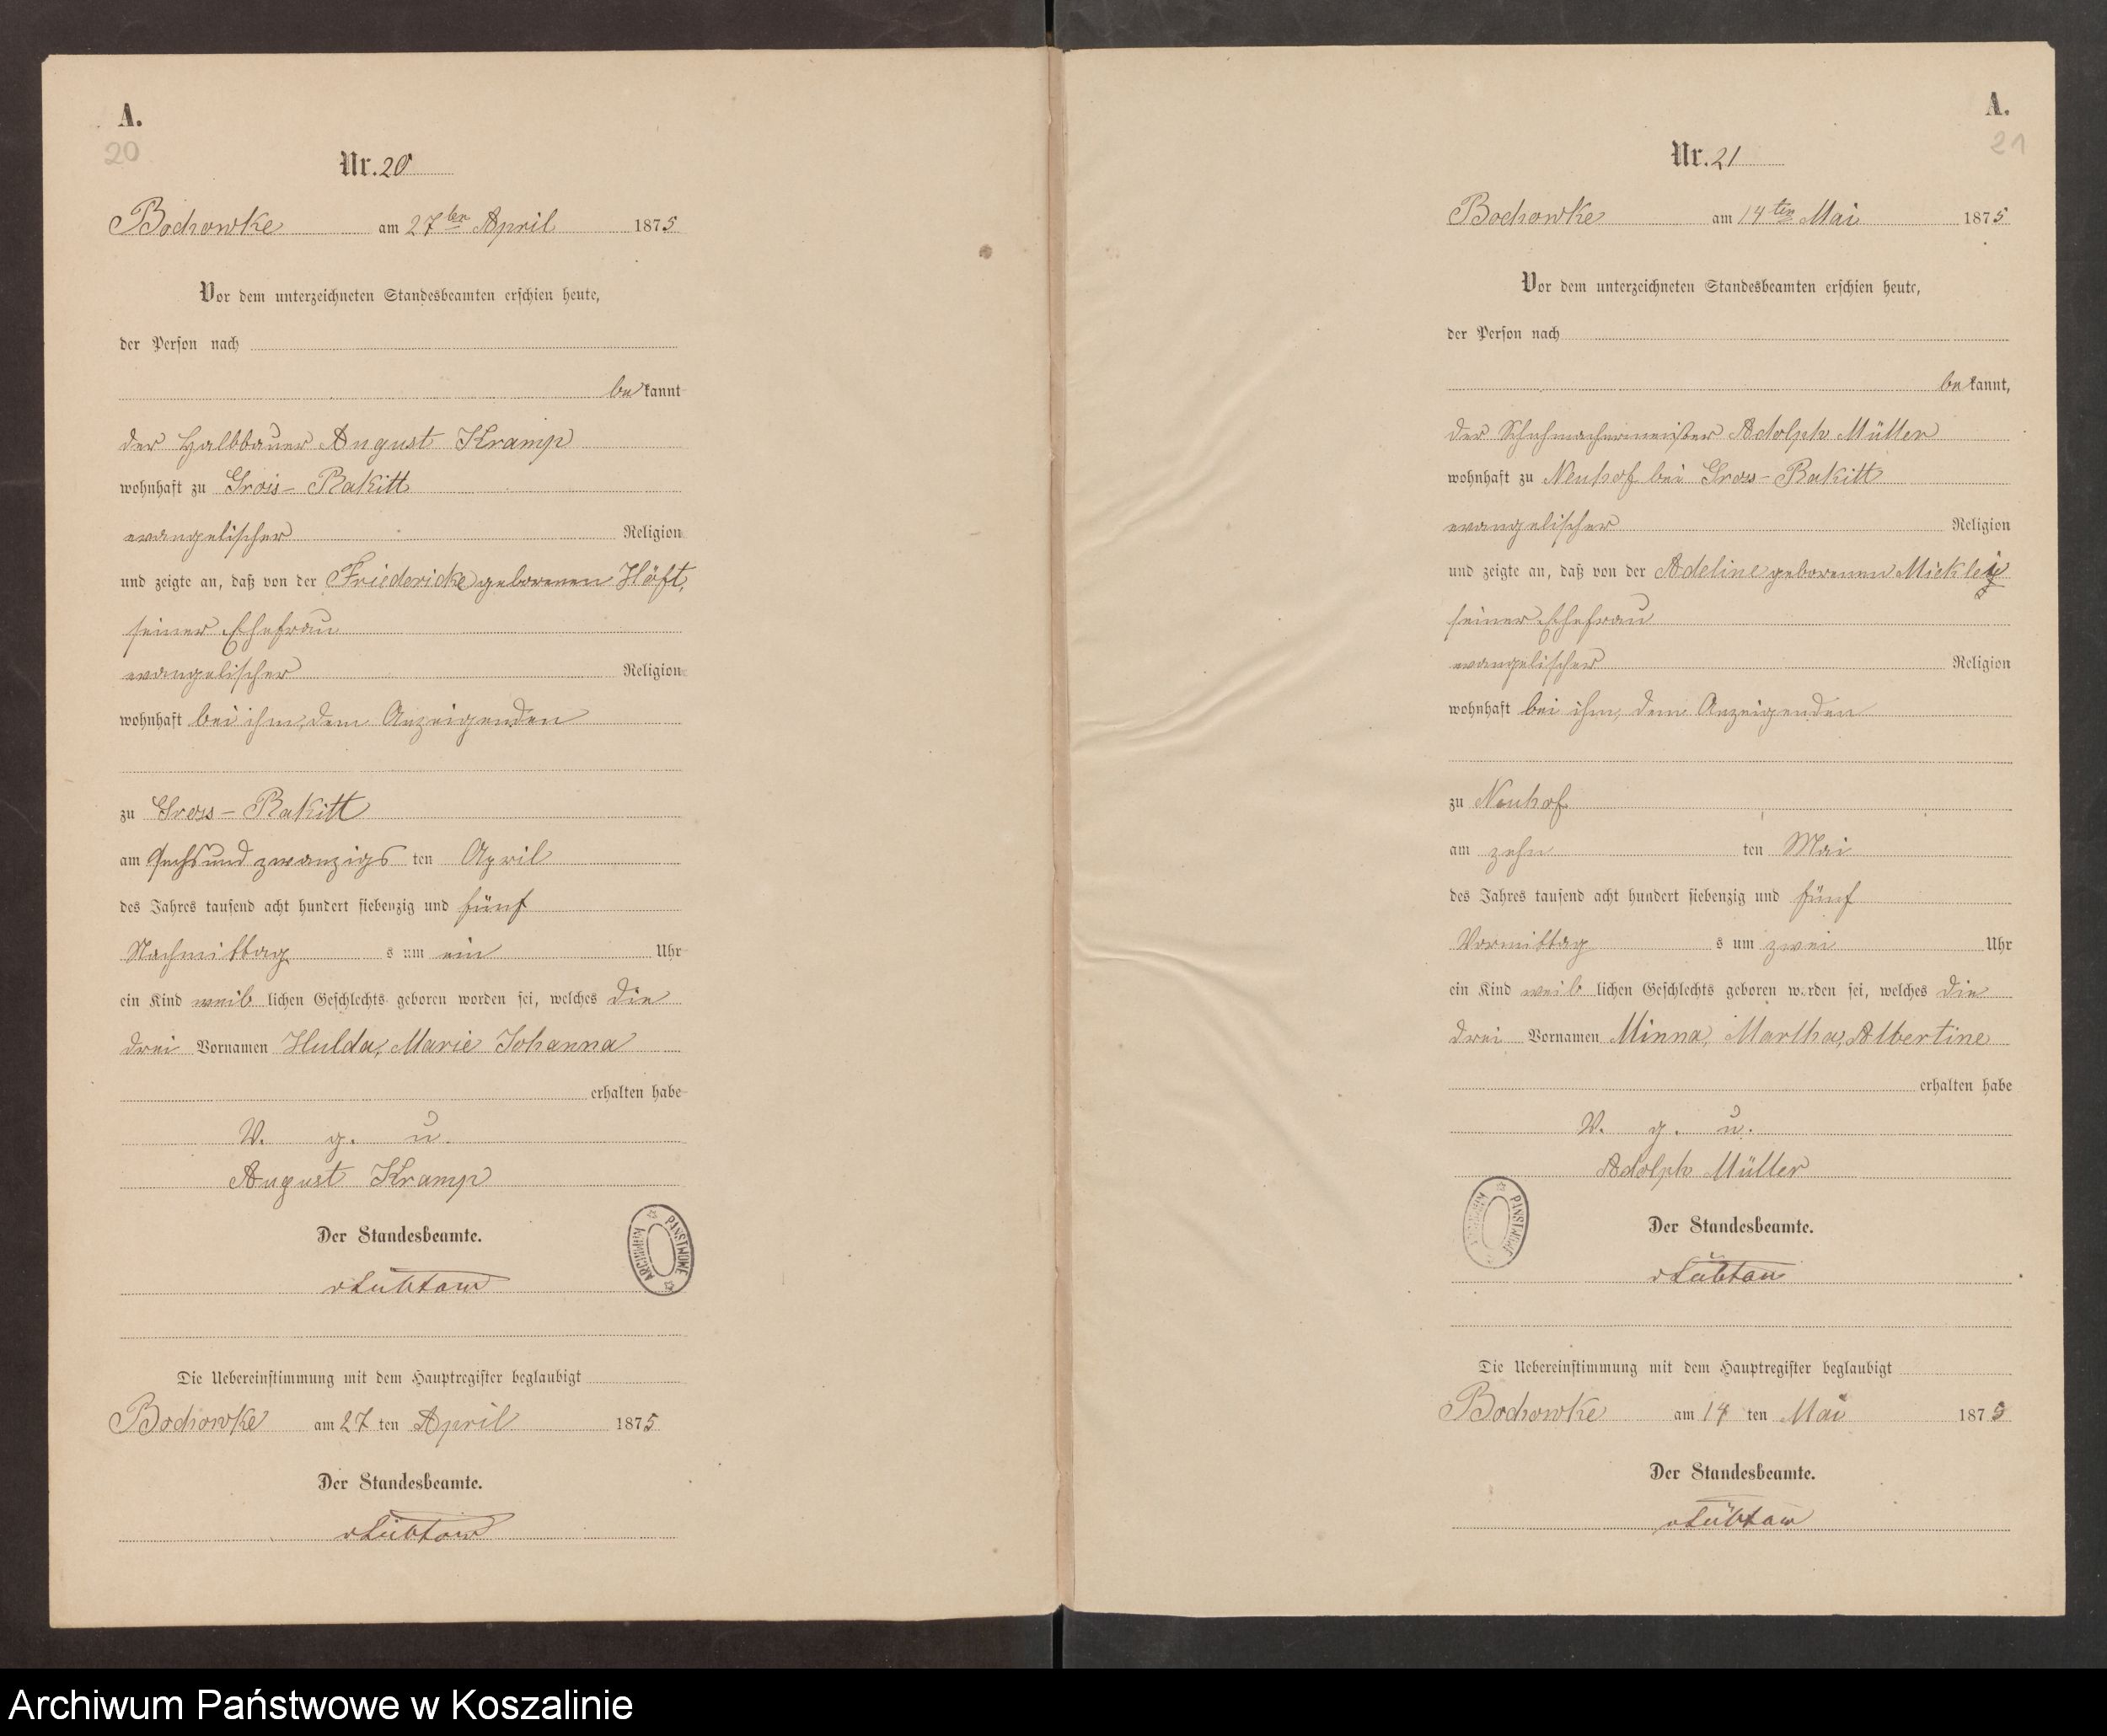 A.
20
Nr. 20
Bochowke am 27ten April 1875
Vor dem unterzeichneten Standesbeamten erschien heute,
der Person nach
be kannt
der Halbbauer August Kramp
wohnhaft zu Gross-Rakitt
evangelischer Religion
und zeigte an, daß von der Friedericke geborenen Höft,
seiner Ehefrau
evangelischer Religion
wohnhaft bei ihm, dem Anzeigenden
zu Gross-Rakitt
am sechsundzwanzigs ten April
des Jahres tausend acht hundert siebenzig und fünf
Nachmittag s um ein Uhr
ein Kind weib lichen Geschlechts geboren worden sei, welches die
drei Vornamen Hulda, Marie Johanna
erhalten habe
V. g. u.
August Kramp
Der Standesbeamte.
ARCHIWUM PAŃSTWOWE
Die Uebereinstimmung mit dem Hauptregister beglaubigt
Bochowke am 27 ten April 1875
Der Standesbeamte.
A.
21
Nr. 21
Bochowke am 14ten Mai 1875
Vor dem unterzeichneten Standesbeamten erschien heute,
der Person nach
be kannt,
der Schuhmachermeister Adolph Müller
wohnhaft zu Neuhof bei Gross-Rakitt
evangelischer Religion
und zeigte an, daß von der Adeline geborenen
seiner Ehefrau
evangelischer Religion
wohnhaft bei ihm, dem Anzeigenden
zu Neuhof
am zehn ten Mai
des Jahres tausend acht hundert siebenzig und fünf
Vormittag s um zwei Uhr
ein Kind weib lichen Geschlechts geboren worden sei, welches die
drei Vornamen Minna, Martha, Albertine
erhalten habe
V. g. u.
Adolph Müller
Der Standesbeamte.
Die Uebereinstimmung mit dem Hauptregister beglaubigt
Bochowke am 14 ten Mai 1875
Der Standesbeamte.
Archiwum Państwowe w Koszalinie